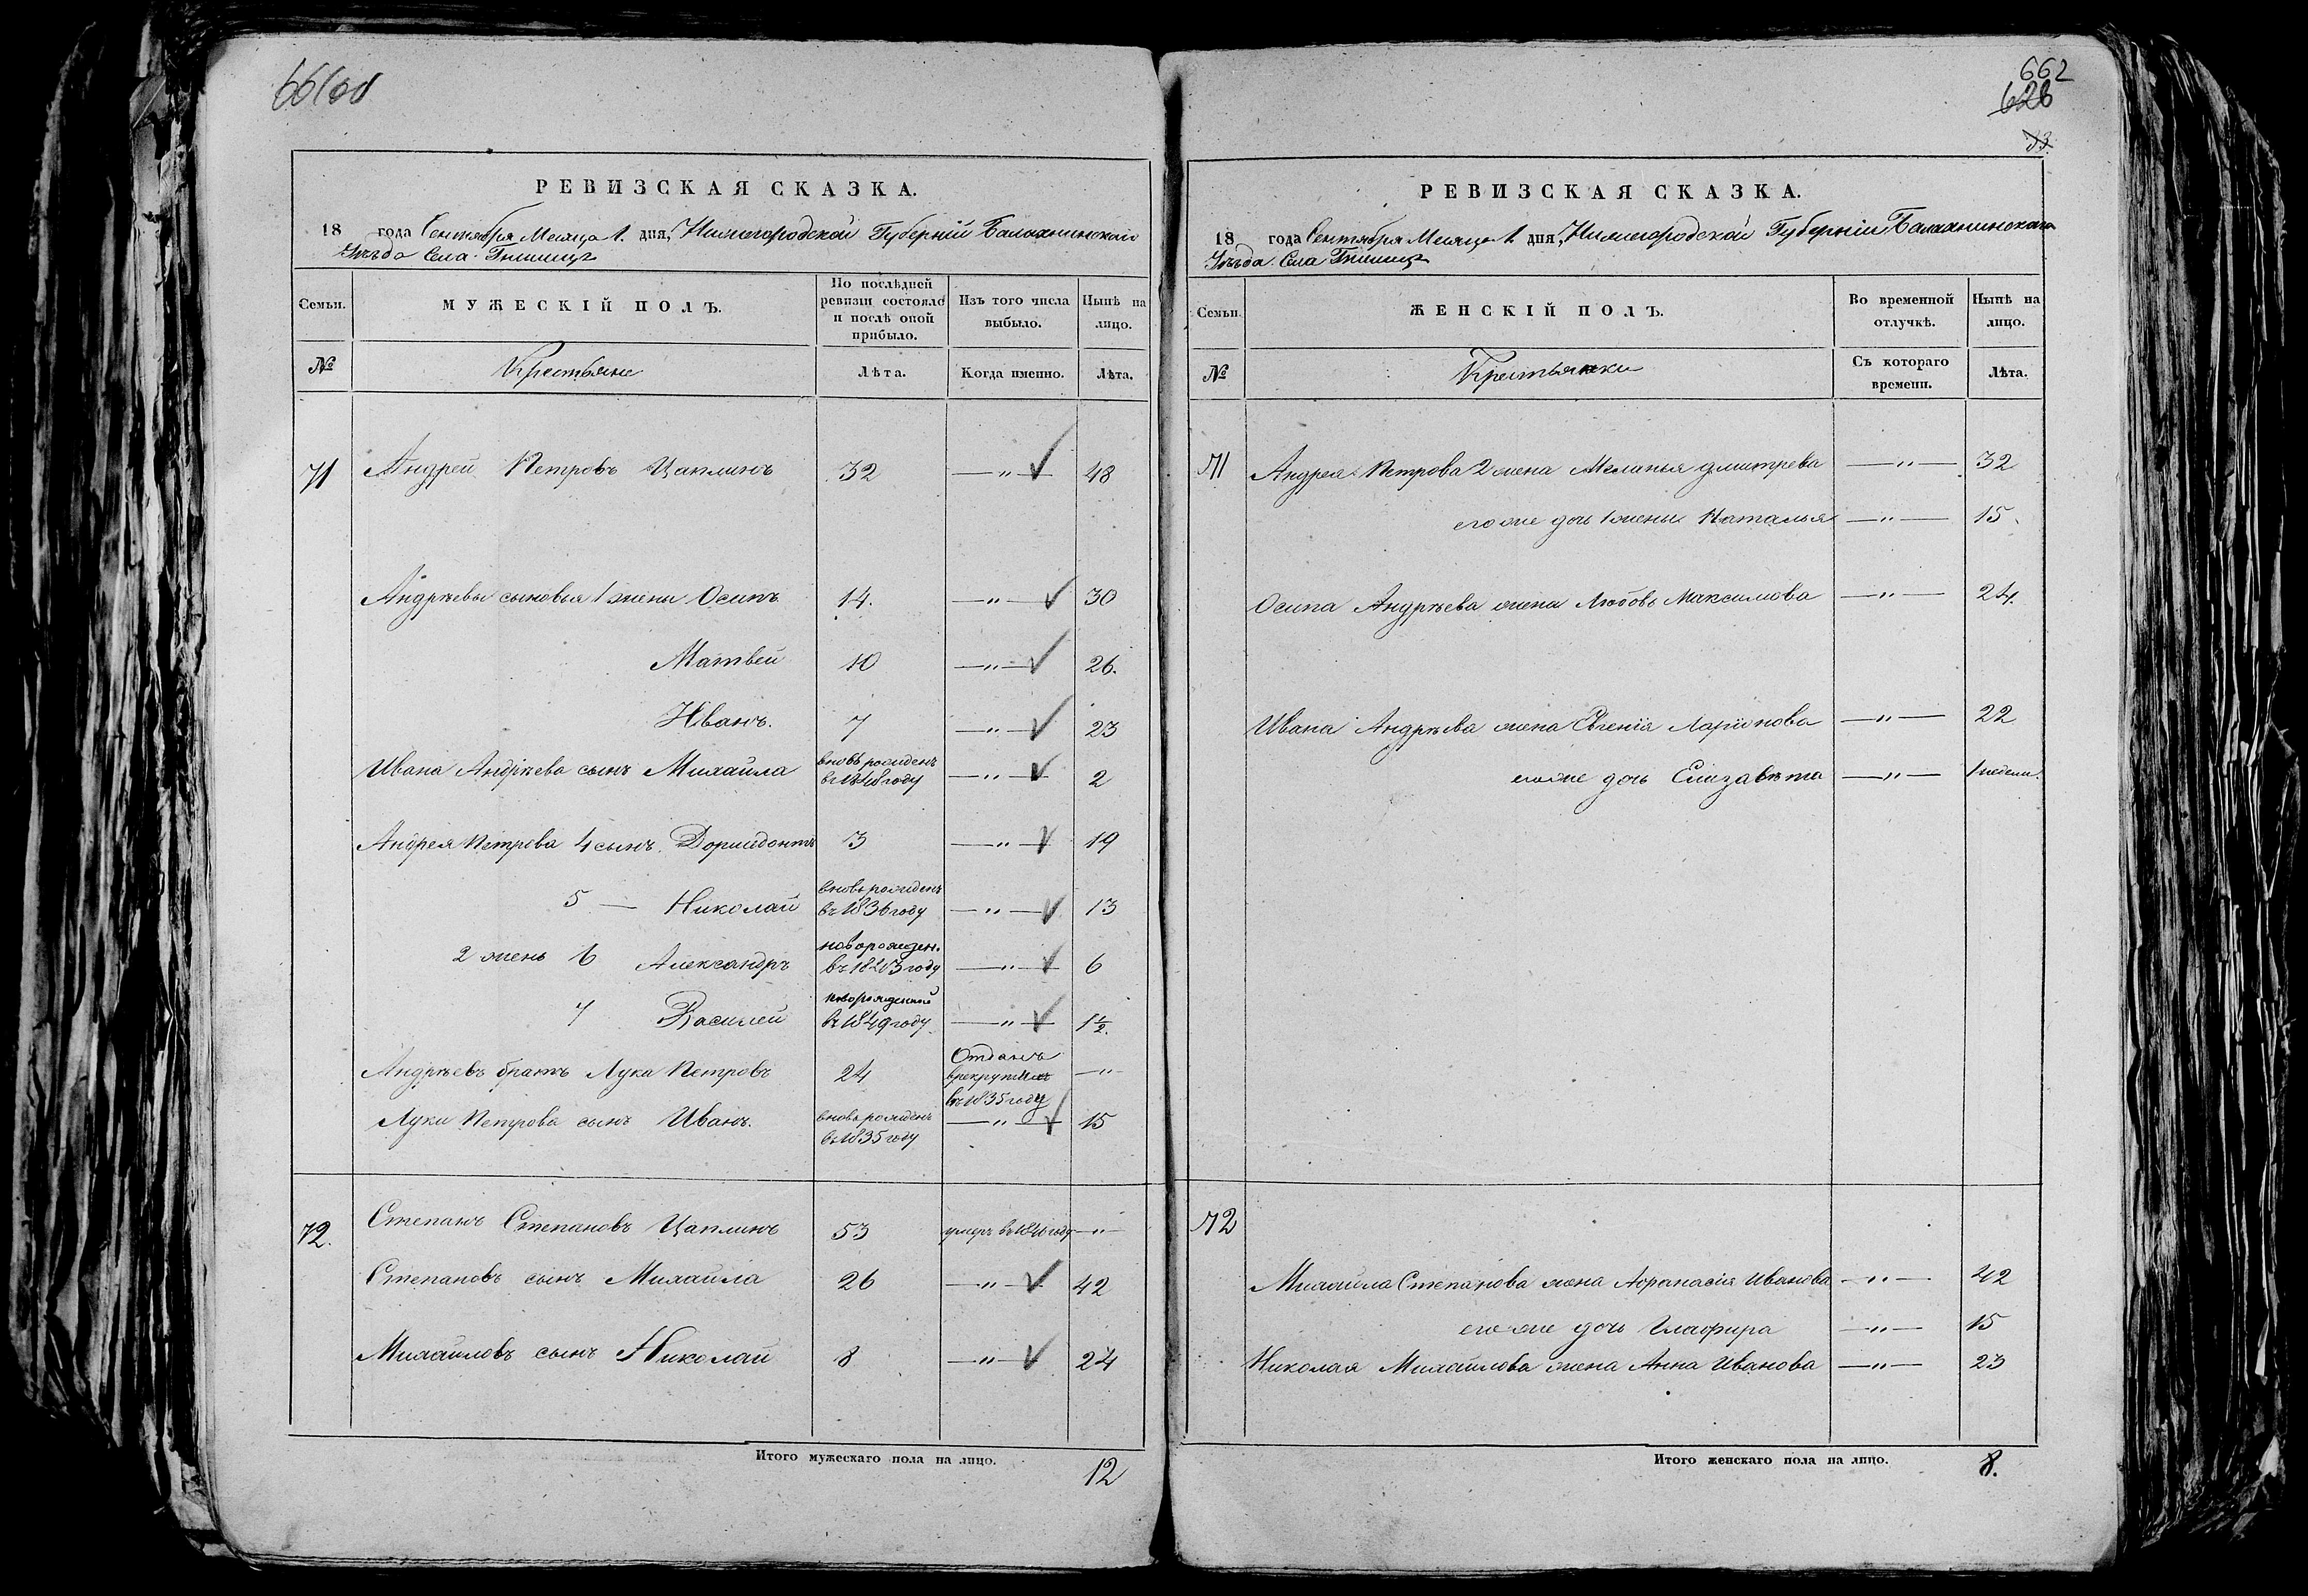 662
628
33.
РЕВИЗСКАЯ СКАЗКА.
18 года Сентября Месяца 1. дня, Нижегородской Губернiи Балахнинскаго
Уѣзда Села Гнилицъ
Семьи.
МУЖЕСКIЙ ПОЛЪ.
По послѣдней ревизiи состояло и послѣ оной прибыло.
Изъ того числа выбыло.
Нынѣ на лицо.
№
Крестьяне
Лѣта.
Когда именно.
Лѣта.
71 Андрей Петровъ Цаплинъ 32 —"— 48
Андрѣевы сыновья 1 жены Осипъ 14. —"— 30
Матвей 10 —"— 26.
Иванъ. 7 —"— 23
Ивана Андрѣева сынъ Михаила вновь рожденъ —"— 2
въ 1848 году
Андрея Петрова 4 сынъ Доримдонтъ 3 —"— 19
5 — Николай вновь рожденъ —"— 13
въ 1836 году
2 жены 6 Александръ новорожден. —"— 6
въ 1843 году
7 Василей новорожденный —"— 1½.
въ 1849 году
Андрѣевъ братъ Лука Петровъ 24 Отданъ —"—
врекруты
въ 1835 году
Луки Петрова сынъ Иванъ. вновь рожденъ —"— 15
въ 1835 году
72. Степанъ Степановъ Цаплинъ 53 умеръ въ 1840 году —"—
Степановъ сынъ Михаила 26 —"— 42
Михайловъ сынъ Николай 8 —"— 24
Итого мужескаго пола на лицо. 12
РЕВИЗСКАЯ СКАЗКА.
18 года Сентября Месяца 1 дня, Нижегородской Губернiи Балахнинскаго
Уѣзда. Села Гнилицъ
Семьи.
ЖЕНСКIЙ ПОЛЪ.
Во временной отлучкѣ.
Нынѣ на лицо.
№
Крестьянки
Съ котораго времени.
Лѣта.
71 Андрея Петрова 2 жена Меланья дмитрева —"— 32
его же дочь 1 жены Наталья —"— 15
Осипа Андрѣева жена Любовь Максимова —"— 24.
Ивана Андрѣева жена Евгенiя Ларiонова —"— 22
его же дочь Елизавѣта —"— 1 недели.
72
Михайла Степанова жена Афанасiя Иванова —"— 42
его же дочь Глафира —"— 15
Николая Михайлова жена Анна Иванова —"— 23
Итого женскаго пола на лицо. 8.